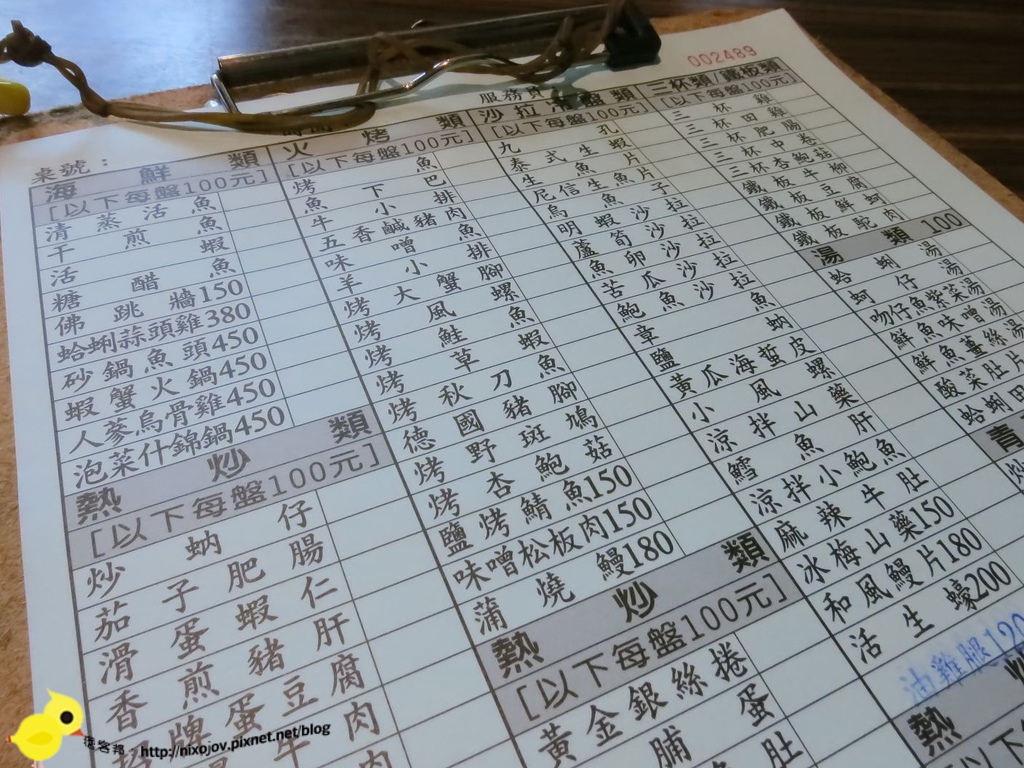 002489
桌號：
服務
海鮮類
[以下每盤100元]
清蒸活魚
干煎魚
活蝦
糖醋魚
佛跳牆150
蛤蜊蒜頭雞380
砂鍋魚頭450
蝦蟹火鍋450
人蔘烏骨雞450
泡菜什錦鍋450
熱炒類
[以下每盤100元]
炒蚋仔
茄子肥腸
滑蛋蝦仁
香煎豬肝
招牌蛋豆腐
牛肉
火烤類
[以下每盤100元]
烤魚
魚下巴
牛小排
五香鹹豬肉
味噌魚
羊小排
烤大蟹腳
烤風螺
烤鮭魚
烤草蝦
烤秋刀魚
德國豬腳
烤野斑鳩
烤杏鮑菇
鹽烤鯖魚150
味噌松板肉150
蒲燒鰻180
熱炒類
[以下每盤100元]
黃金銀絲捲
脯蛋
肚
沙拉冷盤類
[以下每盤100元]
九孔
泰式生蝦
生魚片
尼信生魚片
烏魚子
明蝦沙拉
蘆筍沙拉
魚卵沙拉
苦瓜沙拉
鮑魚沙拉
章魚
鹽蚋
黃瓜海蜇皮
小風螺
涼拌山藥
鱈魚肝
涼拌小鮑魚
麻辣牛肚
冰梅山藥150
和風鰻片180
活生蠔200
油雞腿120
熱炒
[以下每
三杯類/鐵板類
[以下每盤100元]
三杯雞
三杯田雞
三杯肥腸
三杯中卷
三杯杏鮑菇
鐵板牛柳
鐵板豆腐
鐵板鮮蚵
鐵板鴕肉
湯類100
蛤蜊湯
蚵仔湯
吻仔魚紫菜湯
鮮魚味噌湯
鮮魚薑絲湯
酸菜肚片
蛤蜊
青
炒
痞客邦：http://nixojov.pixnet.net/blog